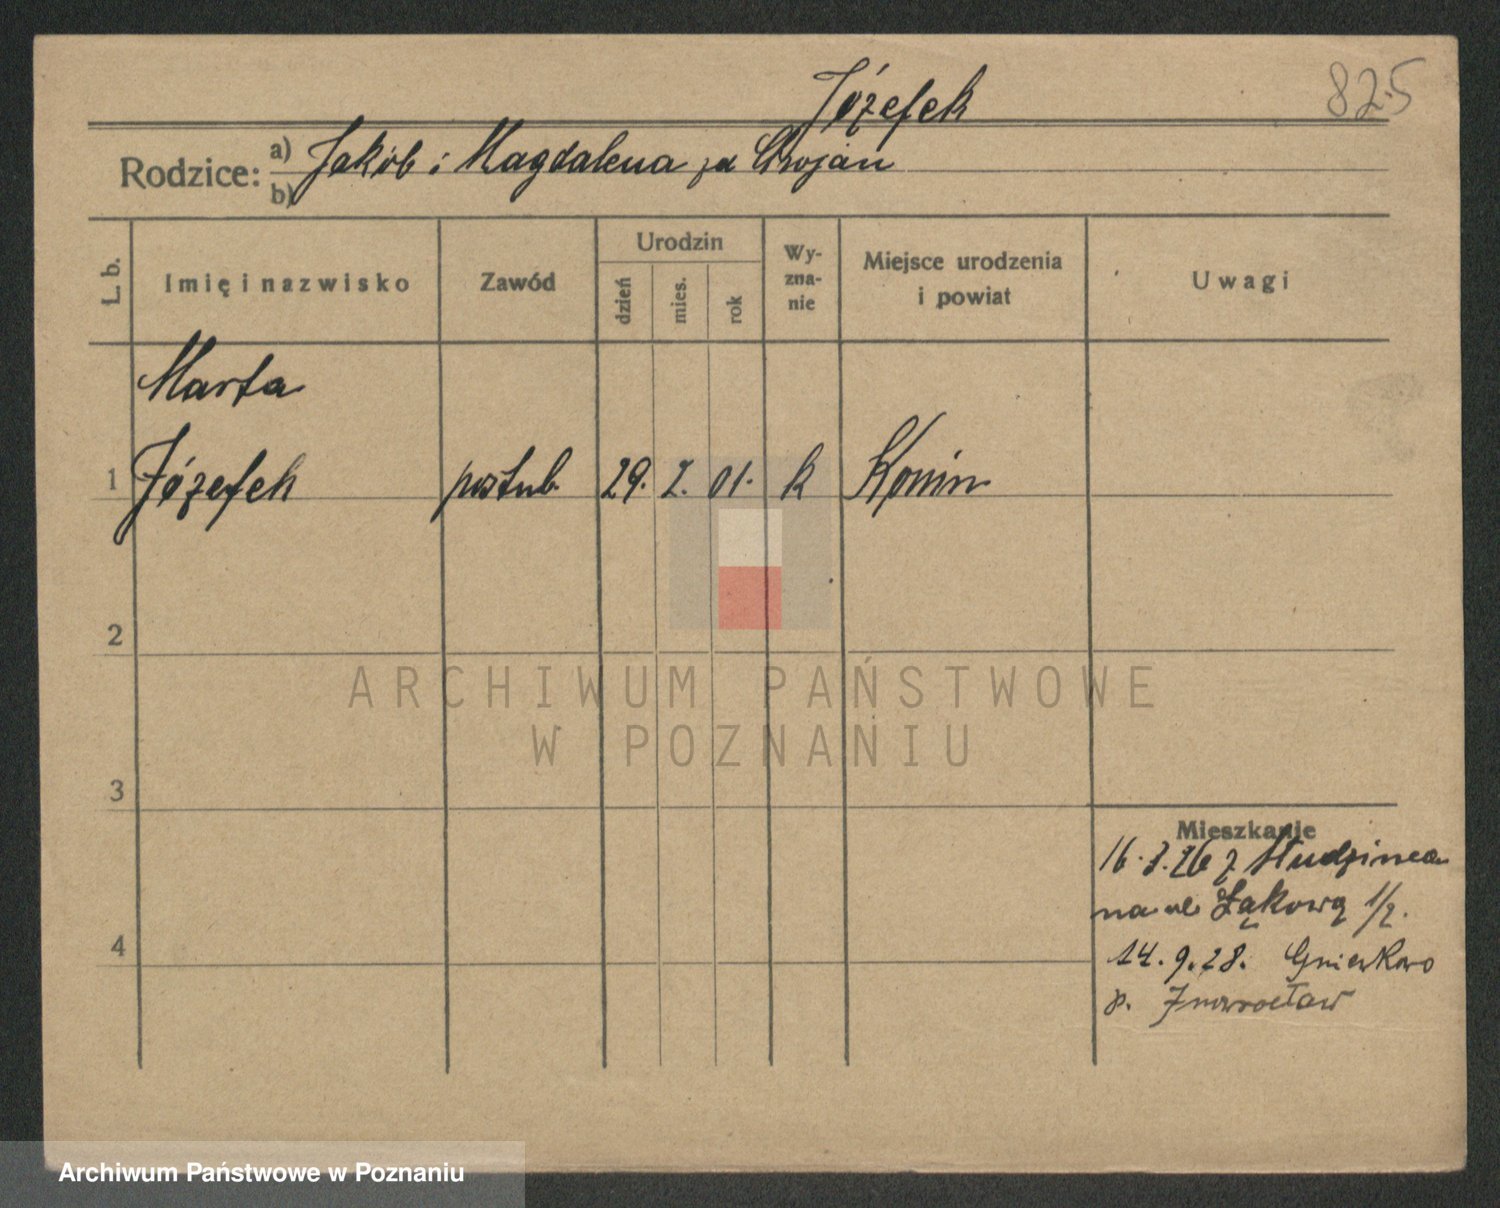 Józefek
825
Rodzice:
a) Jakób i Magdalena zd
b)
L. b.
Imię i nazwisko
Zawód
Urodzin
dzień
mies.
rok
Wy-
zna-
nie
Miejsce urodzenia
i powiat
Uwagi
Marta
1 Józefek postub. 29. 2. 01. k Konin
2
ARCHIWUM PAŃSTWOWE
W POZNANIU
3
Mieszkanie
16. 3. 26 z Studzinca
na ul Łąkową 1/2.
4
14. 9. 28. Gniewkowo
p. Inowrocław
Archiwum Państwowe w Poznaniu